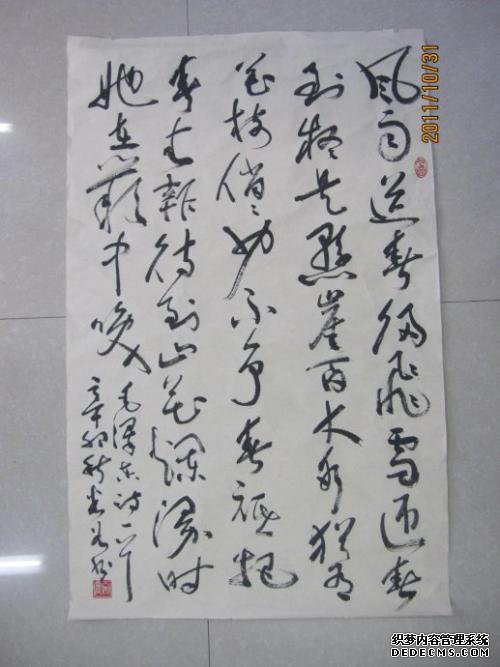 风雨送春归飞雪迎春
到是悬崖百丈冰犹有
花枝俏〻也不争春祇把
春来报待到山花烂漫时
她在丛中笑
毛泽东诗一首
辛卯秋书
2011/10/31
织梦内容管理系统
DEDECMS.COM